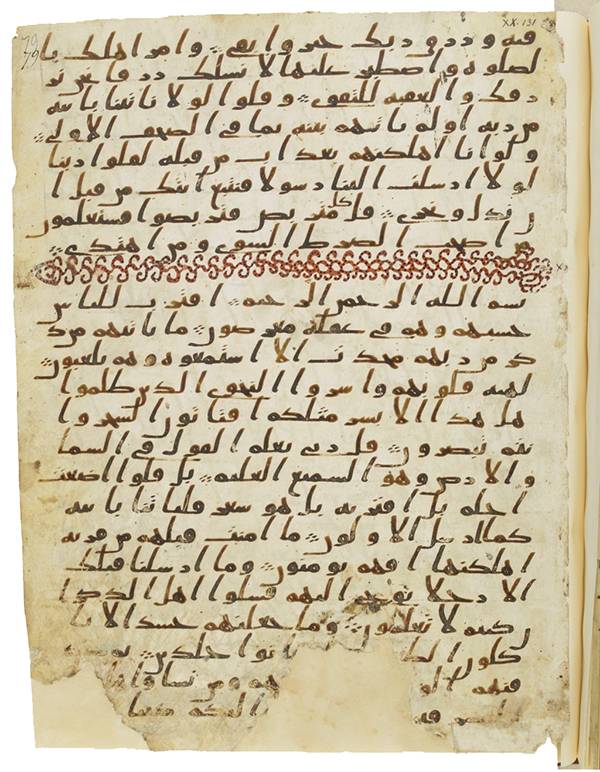 XX.131
79
79
فيه ورزق ربك خير وابقى وامر اهلك با
لصلوة واصطبر عليها لا نسلك رزقا نحن نر
زقك والعقبة للتقوى وقلوا لولا ياتينا باية
من ربه اولم ياتهم بينة ما في الصحف الاولى
ولو انا اهلكنهم بعذاب من قبله لقلوا ربنا
لولا ارسلت الينا رسولا فنتبع ايتك من قبل ا
ن نذل ونخزى قل كل متربص فتربصوا فستعلمون
من اصحب الصرط السوى ومن اهتدى
بسم الله الرحمن الرحيم اقترب للناس
حسبهم وهم في غفلة معرضون ما ياتيهم من ذ
كر من ربهم محدث الا استمعوه وهم يلعبون
لهية قلوبهم واسروا النجوى الذين ظلموا
هل هذا الا بشر مثلكم افتاتون السحر وا
نتم تبصرون قل ربي يعلم القول في السما
والارض وهو السميع العليم بل قلوا اضغث
احلم بل افتريه بل هو شعر فلياتنا باية
كما ارسل الاولون ما امنت قبلهم من قرية
اهلكنها افهم يومنون وما ارسلنا قبلك
الا رجلا نوحى اليهم فسلوا اهل الذكر ا
ن كنتم لا تعلمون وما جعلنهم جسدا لا يا
كلون الط انوا خلدين
قنهم الو هم ومن نشا وا
اليكم كتبا